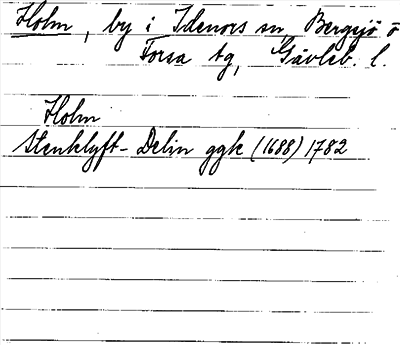 Holm, by i Idenors sn, Bergsjö o
Forsa tg, Gävleb. l.
Holm
Stenklyft-Delin ggk (1688) 1782